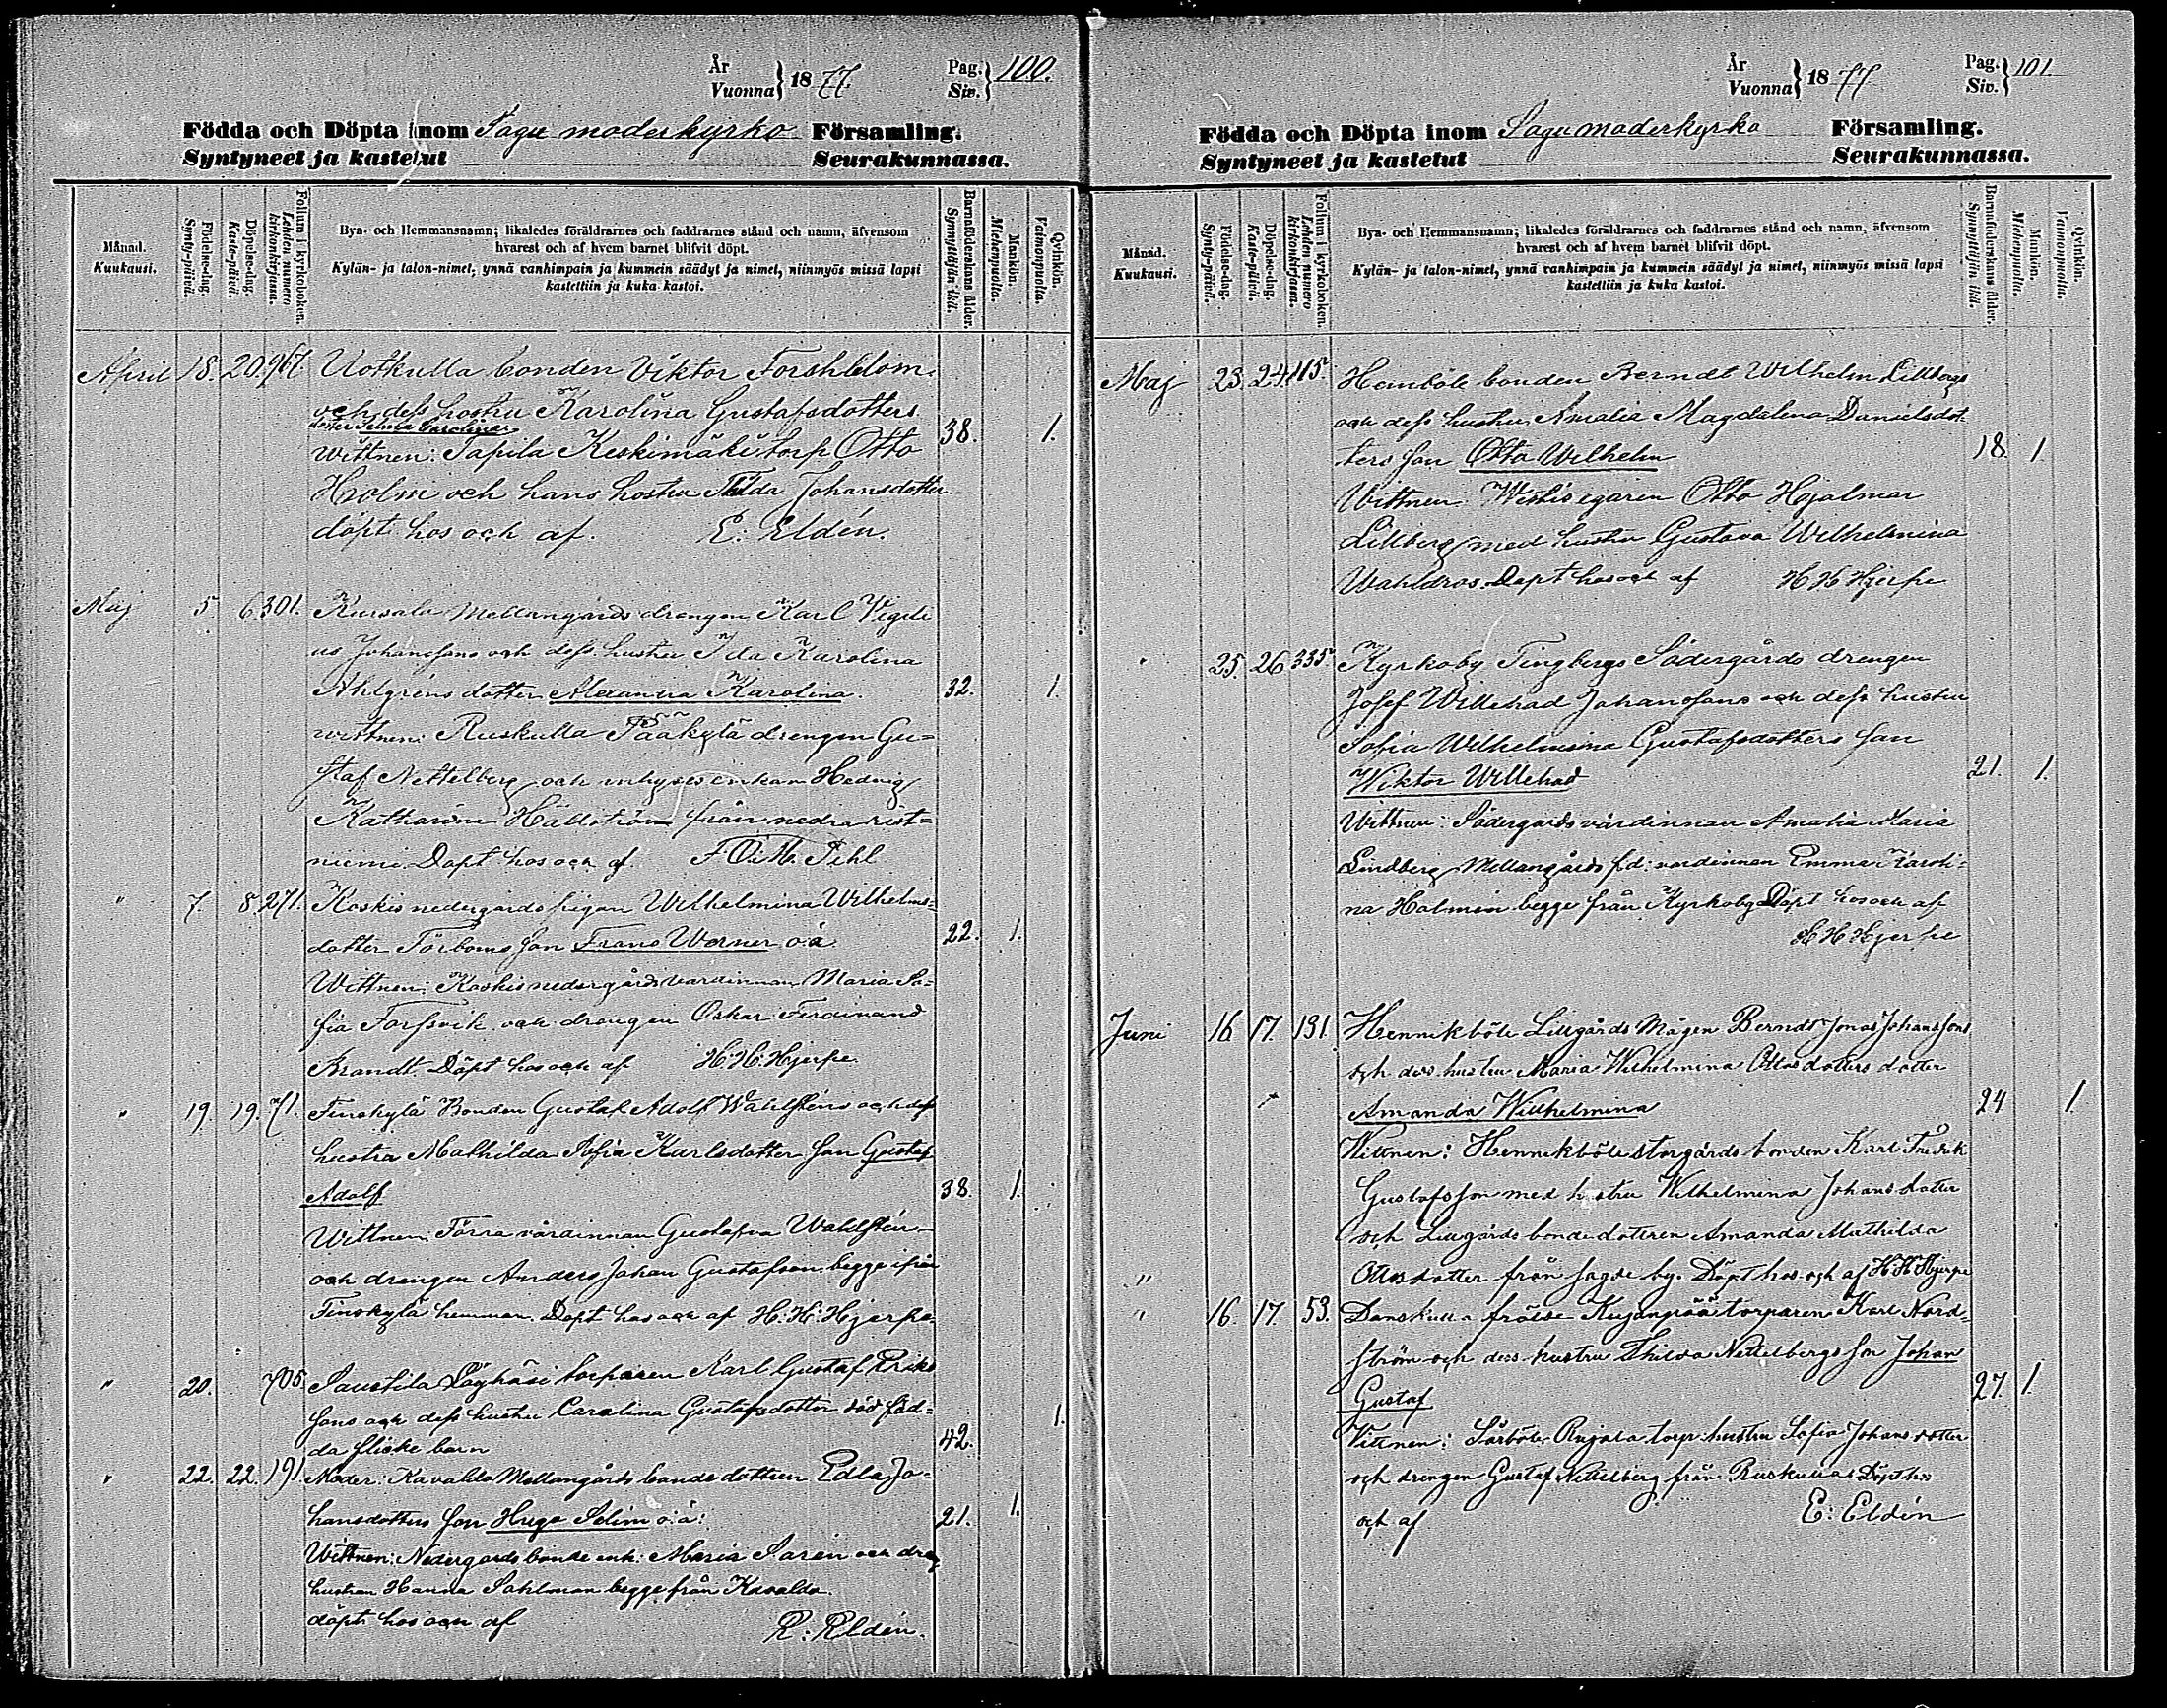 År
Vuonna } 1877. Pag. Siv. } 100.
Födda och Döpta inom Sagu moderkyrko Församling.
Syntyneet ja kastetut Seurakunnassa.
Månad. Kuukausi.
Födelse-dag. Synty-päivä.
Döpelse-dag. Kaste-päivä.
Folium i kyrkoboken. Lehden numero kirkonkirjassa.
Bya- och Hemmansnamn; likaledes föräldrarnes och faddrarnes stånd och namn, äfvensom
hvarest och af hvem barnet blifvit döpt.
Kylän- ja talon-nimet, ynnä vanhimpain ja kummein säädyt ja nimet, niinmyös missä lapsi
kastettiin ja kuka kastoi.
Barnaföderskans ålder. Synnyttäjän ikä.
Mankön. Miehenpuolia.
Qvinkön. Vaimonpuolia.
April 18. 20. 967. Uotkulla bonden Viktor Forshblom
och dess hostru Karolina Gustafsdotters
dotter Selma Carolina 38. 1.
wittnen: Tapila Keskimäki torp Otto
Holm och hans hostru Tilda Johansdotter
döpt hos och af. E: Eldén.
Maj 5. 6. 301. Mellangårds drengen Karl Vigili
us Johanssons och dess hustru Ida Karolina
Ahlgréns dotter Alexandra Karolina. 32. 1.
wittnen: Ruskulla Pääkylä drengen Gu=
staf Nettelberg och inhyses enkan Hedvig
Katharina Hällström från nedra rist=
niemi. Döpt hos och af Pihl
" 7. 8. 271. Koskis nedergårds pigan Wilhelmina Wilhelms=
dotter Törboms son Frans Werner o.ä. 22. 1.
Wittnen: Koskis nedergårds värdinnan Maria So=
fia Forssvik och drengen Oskar Ferdinand
Brandt. Döpt hos och af H: H: Hjerpe.
" 19. 19. 71. Finskylä Bonden Gustaf Adolf Wahlsténs och dess
hustru Mathilda Sofia Karlsdotter son Gustaf
Adolf 38. 1.
Wittnen Förra värdinnan Gustafva Wahlstén
och drengen Anders Johan Gustafsson begge ifrån
Finskylä hemman. Döpt hos och af H: H: Hjerpe.
" 20. 705. Saustila torparen Karl Gustaf Eriks
sons och dess hustru Carolina Gustafsdotter död föd=
da flicke barn 42. 1.
" 22. 22. 191. Moder: Kavalda Mellangårds bonde dottren Edla Jo=
hansdotters son Hugo Selim o.ä: 21. 1.
Wittnen: Nedergårds bonde enk: Maria Sarén och dreng
hustrun Hanna Sahlman begge från Kavalda.
döpt hos och af E: Eldén.
År
Vuonna } 1877 Pag. Siv. } 101.
Födda och Döpta inom Sagu moderkyrka Församling.
Syntyneet ja kastetut Seurakunnassa.
Månad. Kuukausi.
Födelse-dag. Synty-päivä.
Döpelse-dag. Kaste-päivä.
Folium i kyrkoboken. Lehden numero kirkonkirjassa.
Bya- och Hemmansnamn; likaledes föräldrarnes och faddrarnes stånd och namn, äfvensom
hvarest och af hvem barnet blifvit döpt.
Kylän- ja talon-nimet, ynnä vanhimpain ja kummein säädyt ja nimet, niinmyös missä lapsi
kastettiin ja kuka kastoi.
Barnaföderskans ålder. Synnyttäjän ikä.
Mankön. Miehenpuolia.
Qvinkön. Vaimonpuolia.
Maj 23. 24. 115. Hemböle bonden Berndt Wilhelm Lillbergs
och dess hustru Amalia Magdalena Danielsdot=
ters son Otto Wilhelm 18. 1
Wittnen: Westis egaren Otto Hjalmar
Lillberg med hustru Gustava Wilhelmina
Wahldros. Döpt hos och af H H Hjerpe
" 25. 26 335 Kyrkoby Tingbergs Södergårds drengen
Josef Willehad Johanssons och dess hustru
Sofia Wilhelmina Gustafsdotters son
Wiktor Willehad 21. 1.
Wittnen: Södergårds värdinnan Amalia Maria
Lindberg Mellangårds f.d: värdinnan Emma Karoli=
na Holmén begge från Kyrkoby Döpt hos och af
H H Hjerpe
Juni 16. 17. 131. Hennikböle Lillgårds Mågen Berndt Jonas Johansson
och dess hustru Maria Wilhelmina Ottosdotters dotter
Amanda Wilhelmina 24 1.
Wittnen: Hennikböle storgårds bonden Karl Fredrik
Gustafsson med hustru Wilhelmina Johansdotter
och Lillgårds bondedottren Amanda Mathilda
" Ottosdotter från by. Döpt hos och af H: H: Hjerpe
" 16. 17. 53. Danskulla frälse Kujanpää torparen Karl Nord=
ström och dess hustru Thilda Nettelbergs son Johan
Gustaf 27. 1.
Vittnen: Torp: hustru Sofia Johansdotter
och drengen Gustaf Nettelberg från Ruskulla Döpt hos
och af E: Eldén